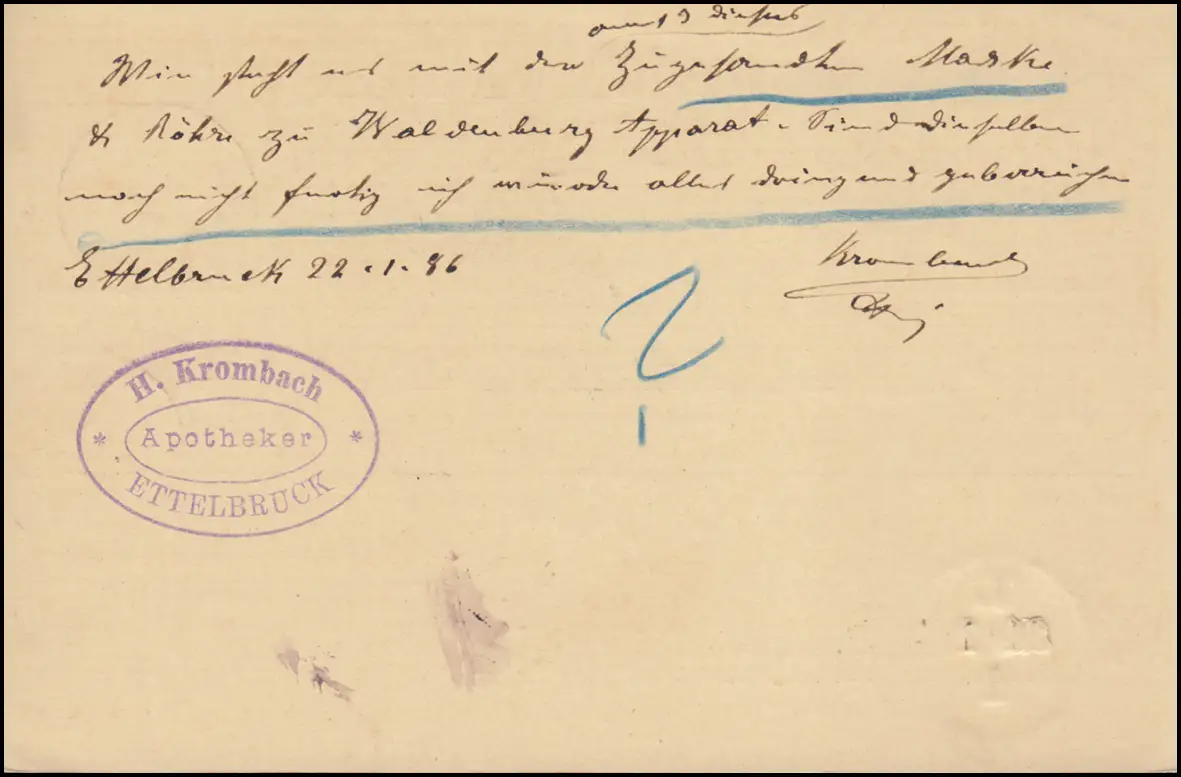 am 13 dieses
Wie steht es mit der Zugesandten Maske
& Röhre zu Waldenburg Apparat. Sind dieselben
noch nicht fertig ich würde alles dringend gebrauchen
Ettelbruck 22.1.86
Krombach
H. Krombach
* Apotheker *
ETTELBRUCK
?